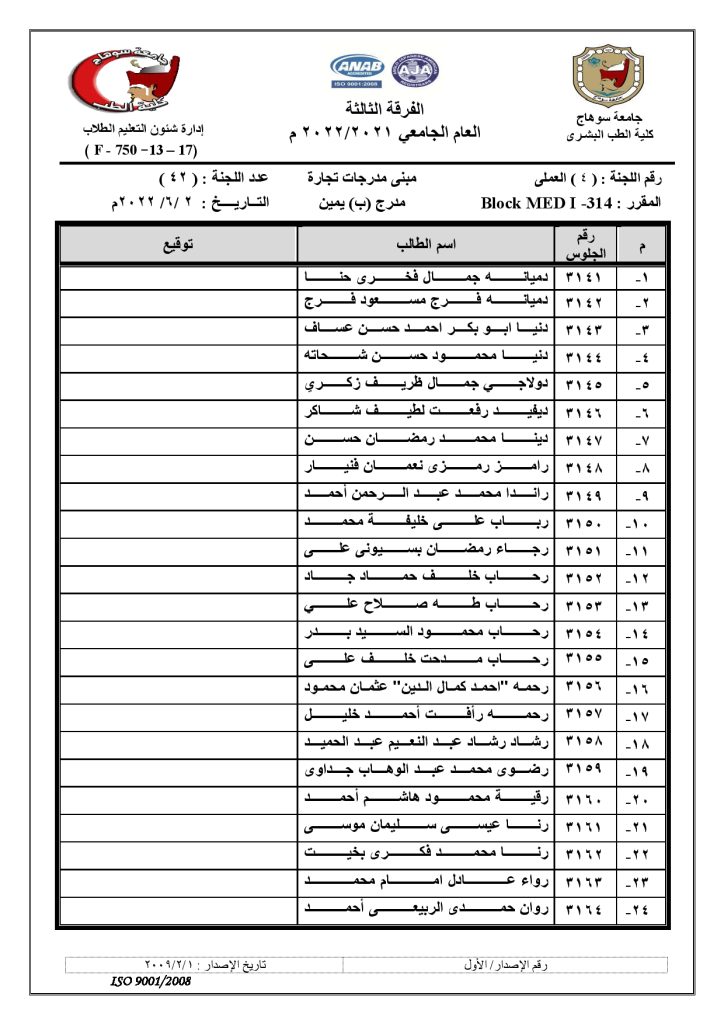 جامعة سوهاج
كلية الطب البشرى
ANAB
ACCREDITED
ISO 9001:2008
AJA
الفرقة الثالثة
العام الجامعي ٢٠٢٢/٢٠٢١ م
جامعة سوهاج
كلية الطب
إدارة شئون التعليم الطلاب
( F - 750 –13 – 17)
رقم اللجنة : ( ٤ ) العملى مبنى مدرجات تجارة عدد اللجنة : ( ٤٢ )
المقرر : Block MED I -314 مدرج (ب) يمين التـاريــخ : ٢ /٦/ ٢٠٢٢م
م رقم الجلوس اسم الطالب توقيع
١- ٣١٤١ دميانه جمال فخرى حنا
٢- ٣١٤٢ دميانه فرج مسعود فرج
٣- ٣١٤٣ دنيا ابو بكر احمد حسن عساف
٤- ٣١٤٤ دنيا محمود حسن شحاته
٥- ٣١٤٥ دولاجي جمال ظريف زكري
٦- ٣١٤٦ ديفيد رفعت لطيف شاكر
٧- ٣١٤٧ دينا محمد رمضان حسن
٨- ٣١٤٨ رامز رمزى نعمان قنيار
٩- ٣١٤٩ راندا محمد عبد الرحمن أحمد
١٠- ٣١٥٠ رباب على خليفة محمد
١١- ٣١٥١ رجاء رمضان بسيونى على
١٢- ٣١٥٢ رحاب خلف حماد جاد
١٣- ٣١٥٣ رحاب طه صلاح علي
١٤- ٣١٥٤ رحاب محمود السيد بدر
١٥- ٣١٥٥ رحاب مدحت خلف على
١٦- ٣١٥٦ رحمه "احمد كمال الدين" عثمان محمود
١٧- ٣١٥٧ رحمه رأفت أحمد خليل
١٨- ٣١٥٨ رشاد رشاد عبد النعيم عبد الحميد
١٩- ٣١٥٩ رضوى محمد عبد الوهاب جداوى
٢٠- ٣١٦٠ رقية محمود هاشم أحمد
٢١- ٣١٦١ رنا عيسى سليمان موسى
٢٢- ٣١٦٢ رنا محمد فكرى بخيت
٢٣- ٣١٦٣ رواء عادل امام محمد
٢٤- ٣١٦٤ روان حمدى الربيعى أحمد
رقم الإصدار/ الأول تاريخ الإصدار : ٢٠٠٩/٢/١
ISO 9001/2008